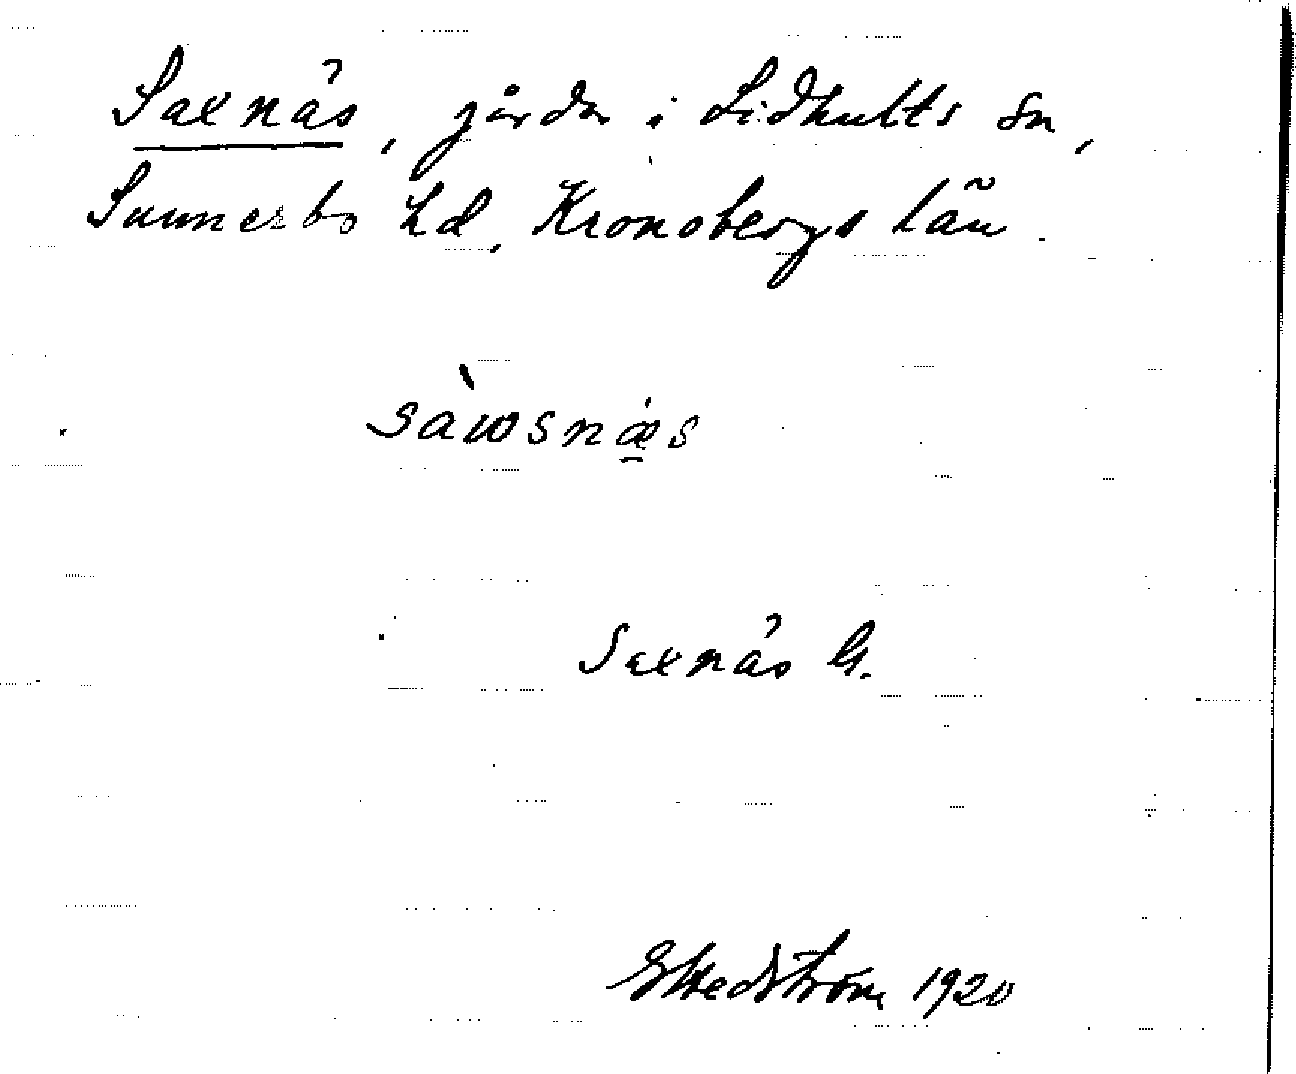 Saxnäs, gårdar i Lidhults sn,
Sunnerbo hd, Kronobergs län.
sàwsnæ̠s
Saxnäs G.
G Hedström 1920